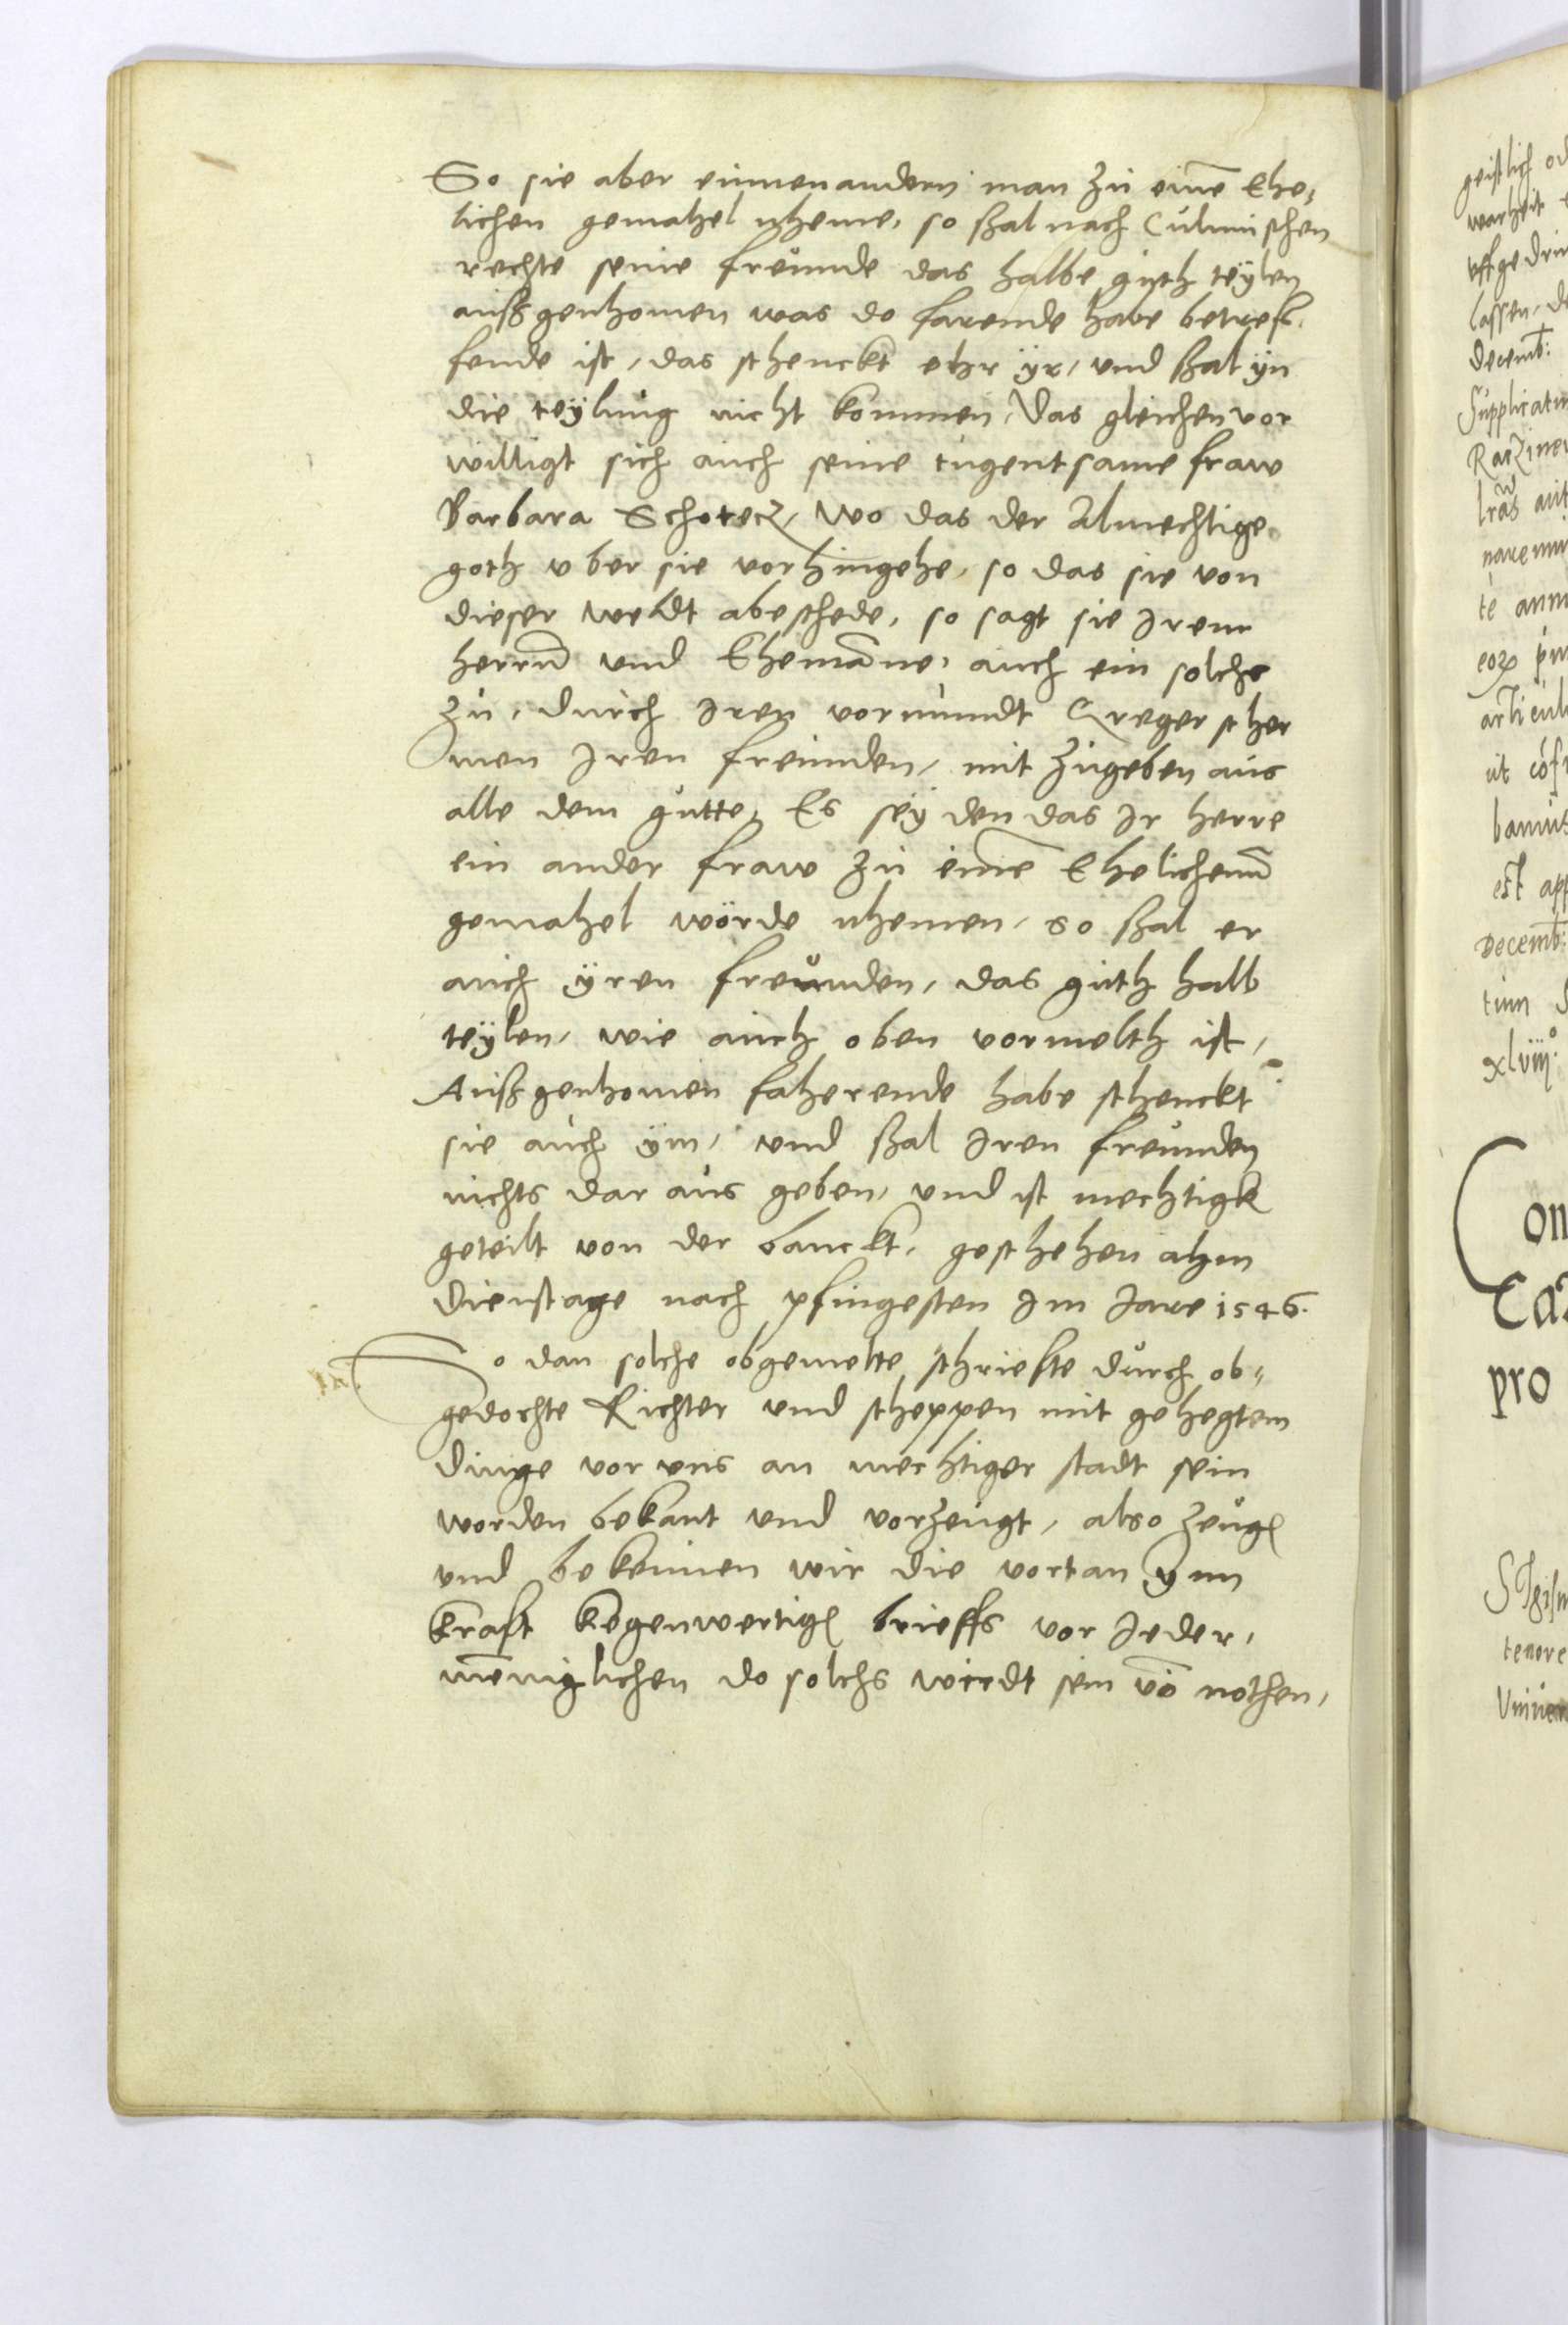 So sie aber einnenandern man zu eine͞ Ehe,
lichen gemahel nheme, so ßal nach Culmischen
rechte seine freunde das halbe guth teÿlen
außgenhomen was do farende habe betref,
fende ist, das schenckt ehr ÿr, und ßal ÿn
die teÿlung nicht kommen, Das gleichen vor
willigt sich auch seine tugentsame fraw
Barbara Schotecz, wo das der Almechtige
goth uber sie vorhingehe, so das sie von
dieser weldt abeschede, so sagt sie Irem
herrn̄ und Ehema͞ne, auch ein solchs
zu, durch Iren vormundt Greger scher
men Iren freunden, nit zugeben aus
alle dem gutte, Es seÿ den das Ir herre
ein ander fraw zu eine͞ Ehelichenn̄
gemahel wörde nhemen, so ßal er
auch ÿren freunden, das guth halb
teÿlen, wie auch oben vormelth ist,
Außgenhomen faherende habe schenckt
sie auch ÿm, und ßal Iren freunden
nichts dar aus geben, und ist mechtigk
geteilt von der banckt, geschehen ahm
Dienstage nach pfingesten Im Jare 1546.
So dan solche obgemelte schriefte durch ob-
gedochte Richter und scheppen mit gehegtem
dinge vor uns an mechtiger stadt sein
worden bekant und vorzeugt, also zeugen
und bekennen wir die vortan ynn
kraft kegenwertigen brieffs vor Jeder,
me͞niglichen do solchs wirdt sein vo͞ nothen,
geistlich od
warheit
uffgedru
lassen, d
Decemb:
Supplicatu
narem
te ann
articul
ut co͞f
bamus
est app
Decemb:
tum
xlviij°:
on
pro
tenore
Univer